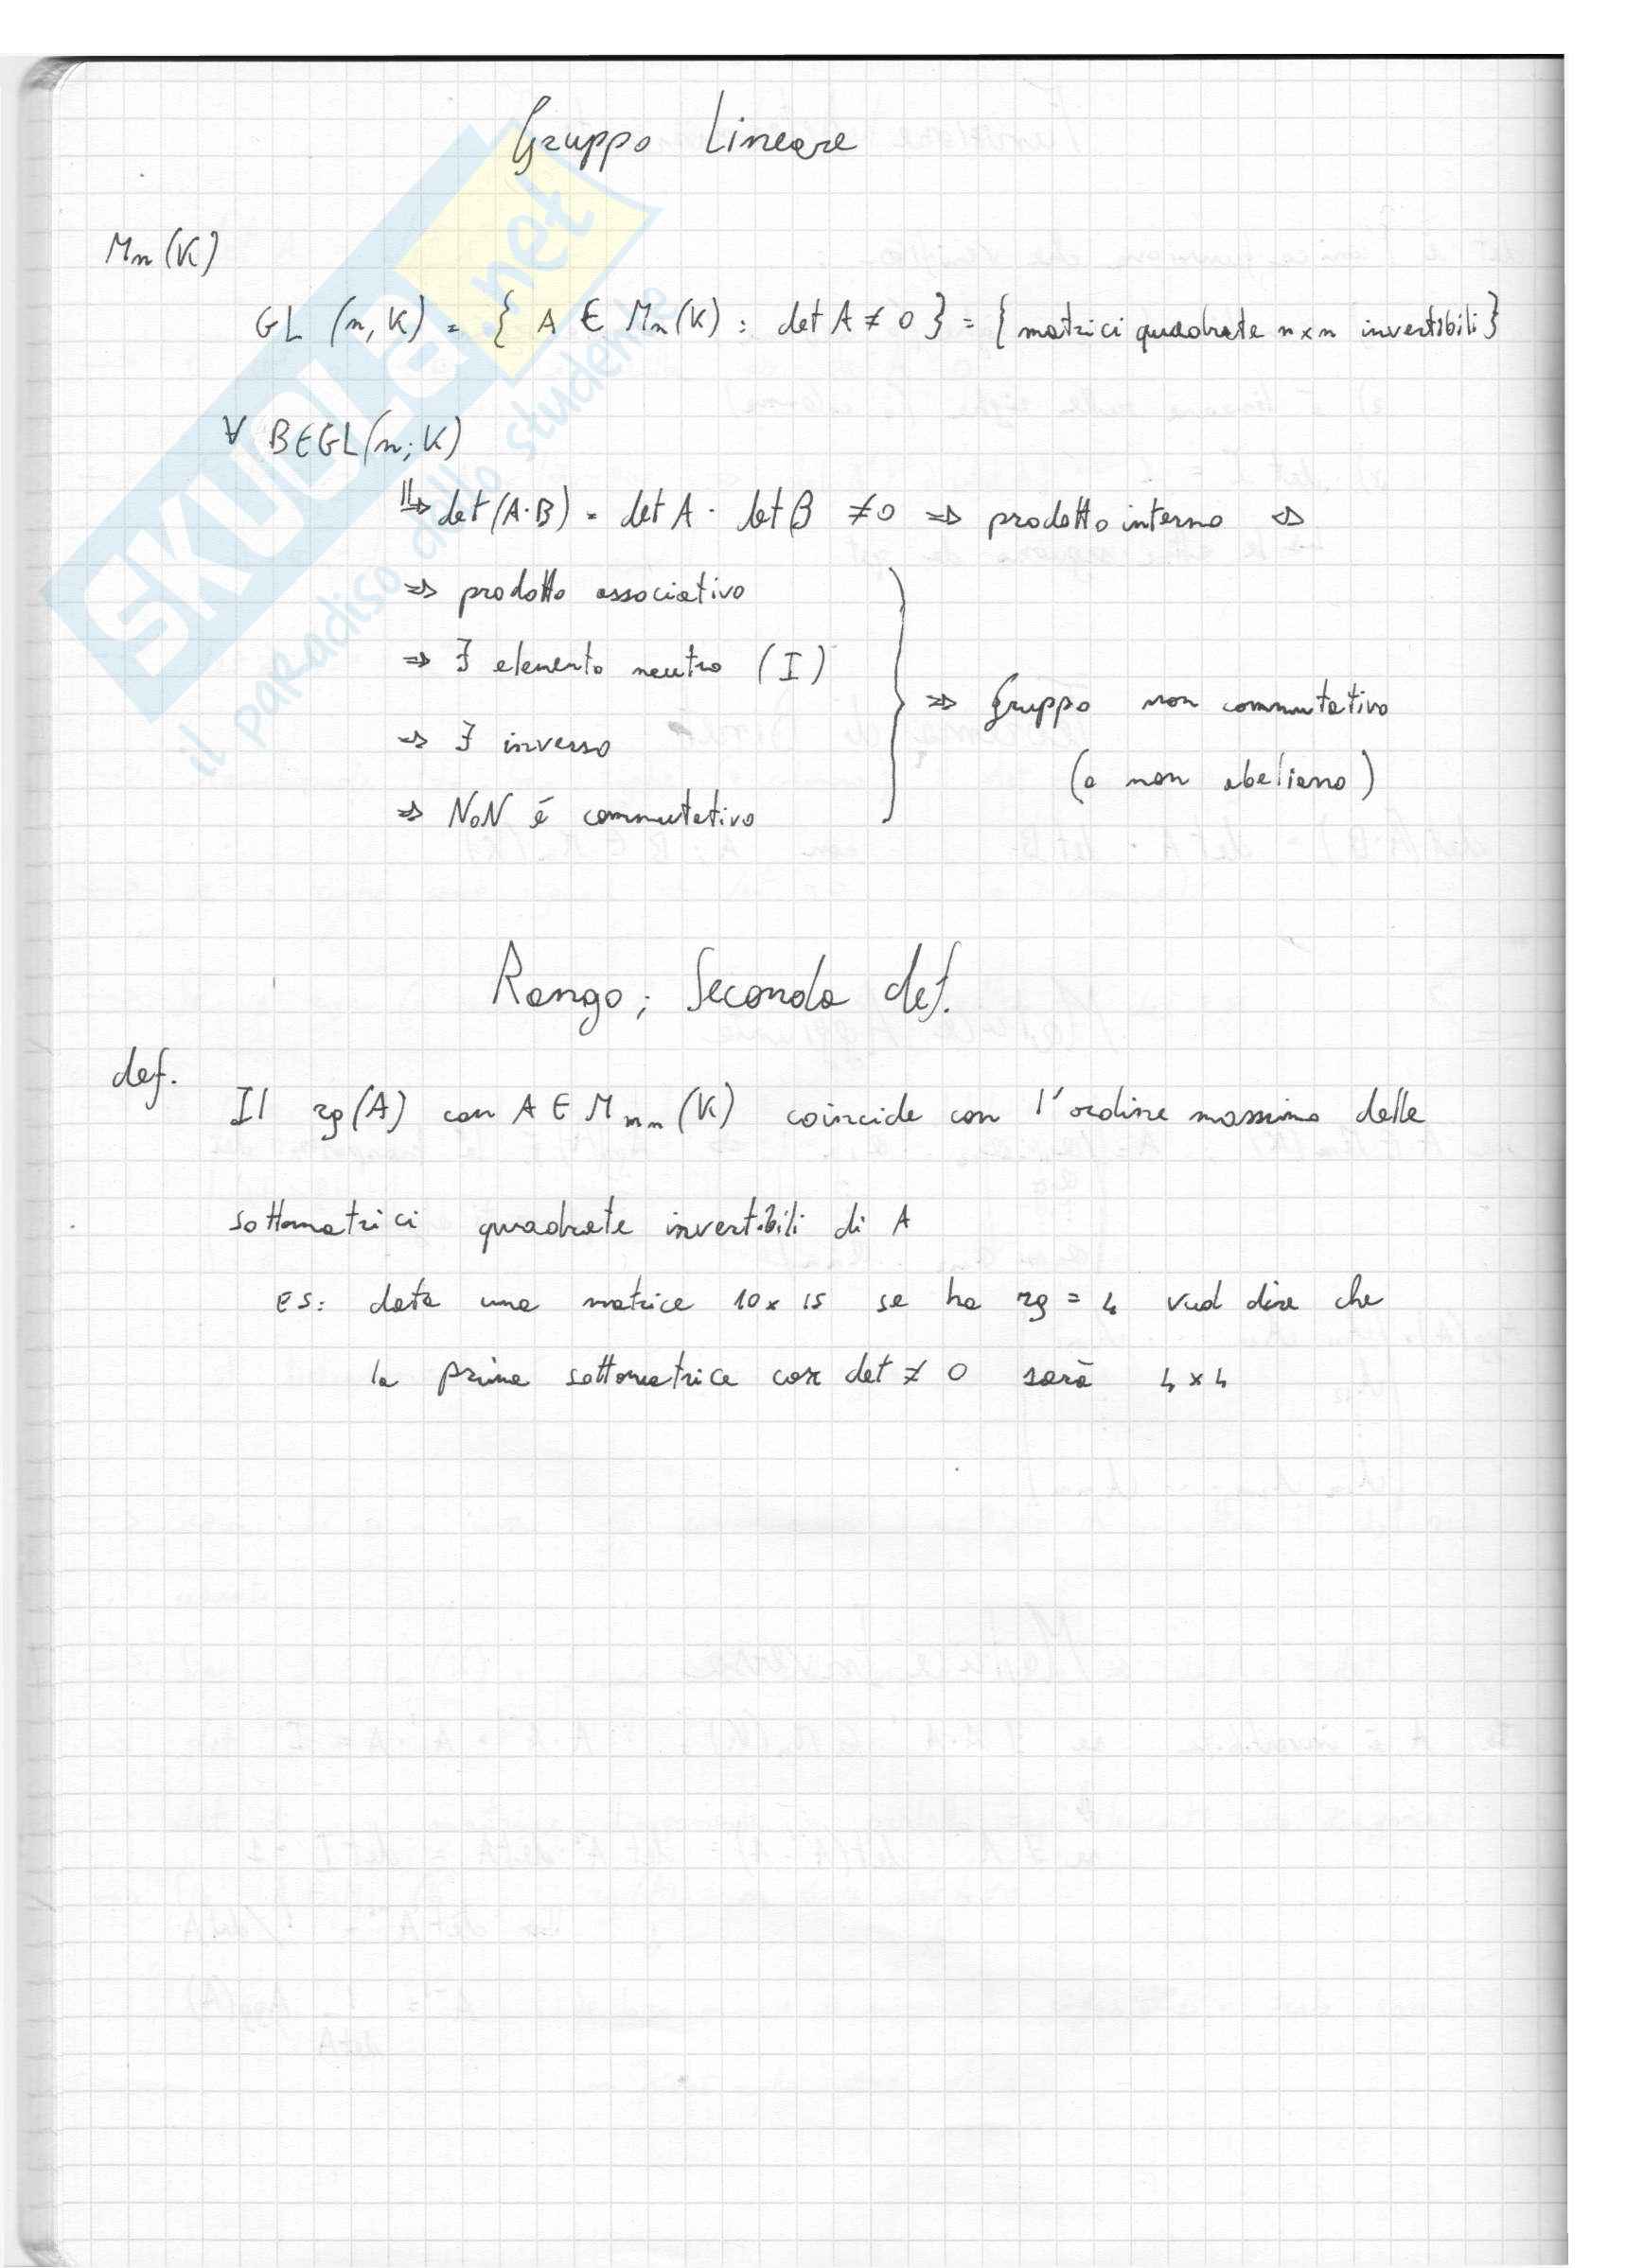 Gruppo Lineare
Mn (K)
GL (n, K) = { A ∈ Mn (K) : det A ≠ 0 } = { matrici quadrate n x n invertibili }
∀ B ∈ GL (n; K)
⇒ det (A·B) = det A · det B ≠ 0 ⇒ prodotto interno ⇔
⇒ prodotto associativo
⇒ ∃ elemento neutro (I)
⇒ ∃ inverso
⇒ NoN é commutativo
} ⇒ Gruppo non commutativo
(o non abeliano)
Rango ; Seconda def.
def.
Il rg (A) con A ∈ M m n (K) coincide con l'ordine massimo delle
sottomatrici quadrate invertibili di A
ES: data una matrice 10 x 15 se ha rg = 4 vuol dire che
la prima sottomatrice con det ≠ 0 sarà 4 x 4
SKUOLA.net
il paradiso dello studente